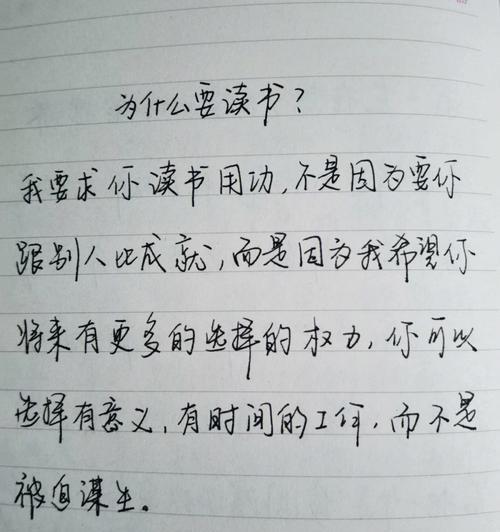 为什么要读书?
我要求你读书用功,不是因为要你
跟别人比成就,而是因为我希望你
将来有更多的选择的权力,你可以
选择有意义,有时间的工作,而不是
被迫谋生。